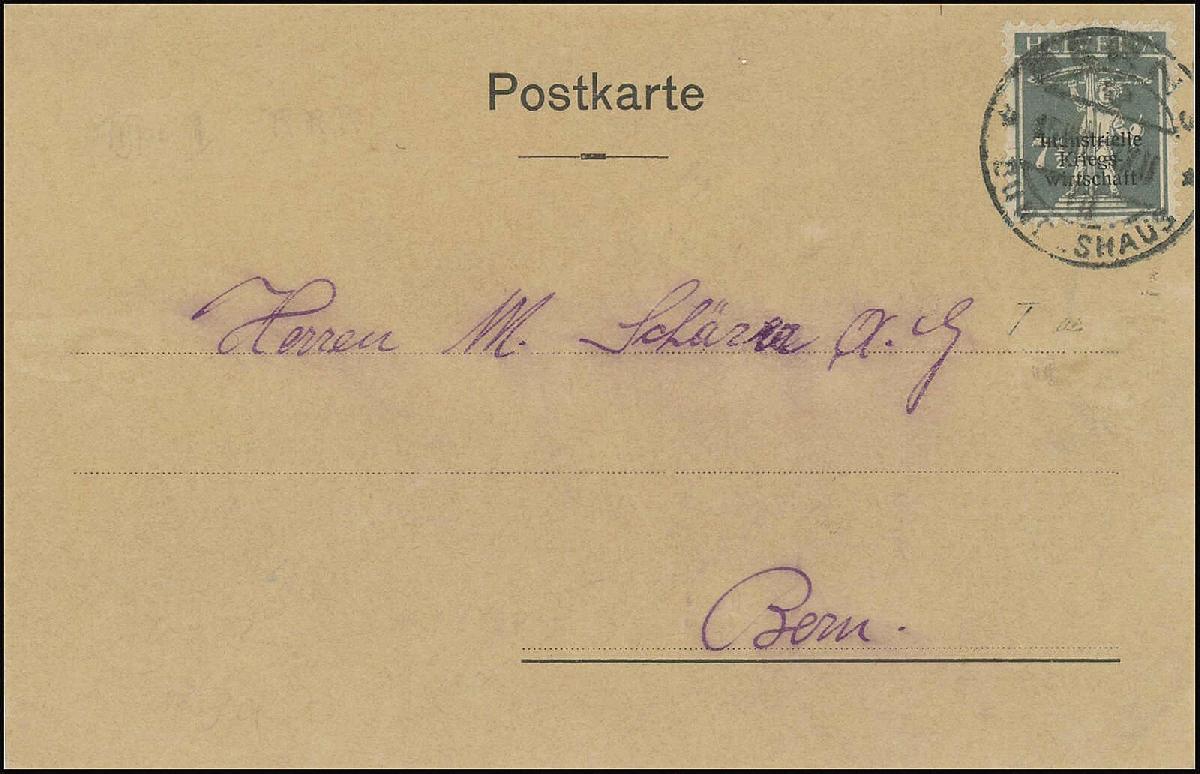 Postkarte
HELVETIA
7½
Industrielle
Kriegs-
wirtschaft
Herren M. Schärer A. G
Bern.